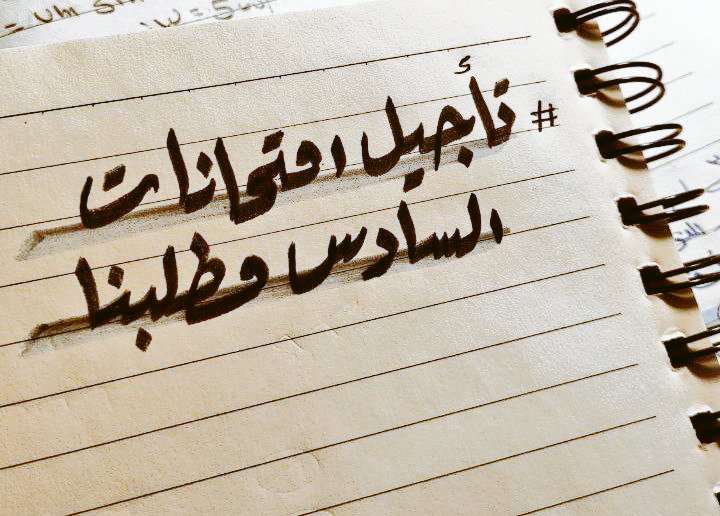 #تأجيل امتحانات
السادس مطلبنا